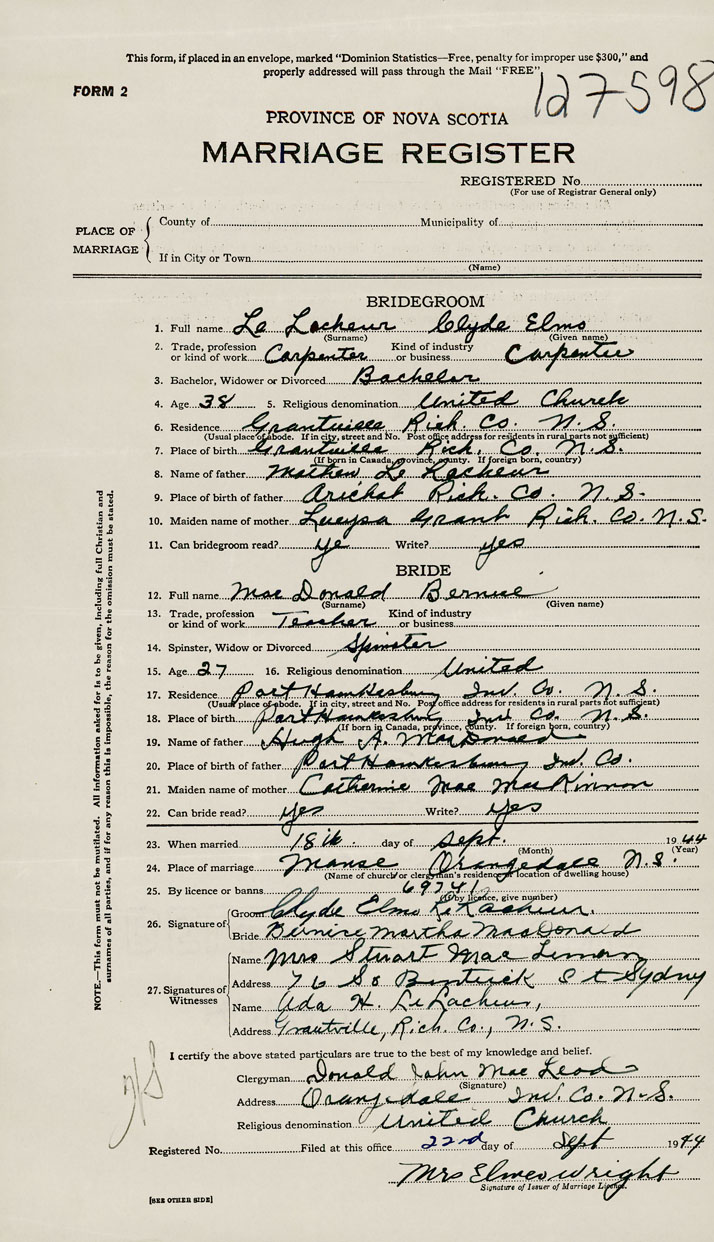 This form, if placed in an envelope, marked "Dominion Statistics—Free, penalty for improper use $300," and
properly addressed will pass through the Mail "FREE"
127598
FORM 2
PROVINCE OF NOVA SCOTIA
MARRIAGE REGISTER
REGISTERED No.
(For use of Registrar General only)
PLACE OF MARRIAGE
County of Municipality of
If in City or Town
(Name)
BRIDEGROOM
1. Full name Le Lacheur Clyde Elmo
(Surname) (Given name)
2. Trade, profession or kind of work Carpenter Kind of industry or business Carpenter
3. Bachelor, Widower or Divorced Bachelor
4. Age 38 5. Religious denomination United Church
6. Residence Grantville Rich. Co. N.S.
(Usual place of abode. If in city, street and No. Post office address for residents in rural parts not sufficient)
7. Place of birth Grantville Rich. Co. N.S.
(If born in Canada, province, county. If foreign born, country)
8. Name of father Mathew Le Lacheur
9. Place of birth of father Arichat Rich. Co. N.S.
10. Maiden name of mother Grant Rich. Co. N.S.
11. Can bridegroom read? ye Write? yes
BRIDE
12. Full name MacDonald Bernice
(Surname) (Given name)
13. Trade, profession or kind of work Teacher Kind of industry or business
14. Spinster, Widow or Divorced Spinster
15. Age 27 16. Religious denomination United
17. Residence Port Hawkesbury Inv. Co. N.S.
(Usual place of abode. If in city, street and No. Post office address for residents in rural parts not sufficient)
18. Place of birth Port Hawkesbury Inv. Co. N.S.
(If born in Canada, province, county. If foreign born, country)
19. Name of father Hugh A. MacDonald
20. Place of birth of father Port Hawkesbury Inv. Co.
21. Maiden name of mother Catherine Mae MacKinnon
22. Can bride read? yes Write? yes
23. When married 18th day of Sept. 1944
(Month) (Year)
24. Place of marriage Manse Orangedale N.S.
(Name of church or clergyman's residence, location of dwelling house)
25. By licence or banns 69741
(If by licence, give number)
26. Signature of
Groom Clyde Elmo LeLacheur.
Bride Bernice Martha MacDonald
27. Signatures of Witnesses
Name Mrs Stuart Mac
Address 76 So St Sydney
Name Ada H. LeLacheur,
Address Grantville, Rich. Co., N.S.
I certify the above stated particulars are true to the best of my knowledge and belief.
Clergyman Donald John MacLeod
(Signature)
Address Orangedale Inv. Co. N.S.
Religious denomination United Church
Registered No. Filed at this office 22nd day of Sept 1944
Mrs Elmer Wright
Signature of Issuer of Marriage Licence.
[SEE OTHER SIDE]
NOTE.—This form must not be mutilated. All information asked for is to be given, including full Christian and
surnames of all parties, and if for any reason this is impossible, the reason for the omission must be stated.